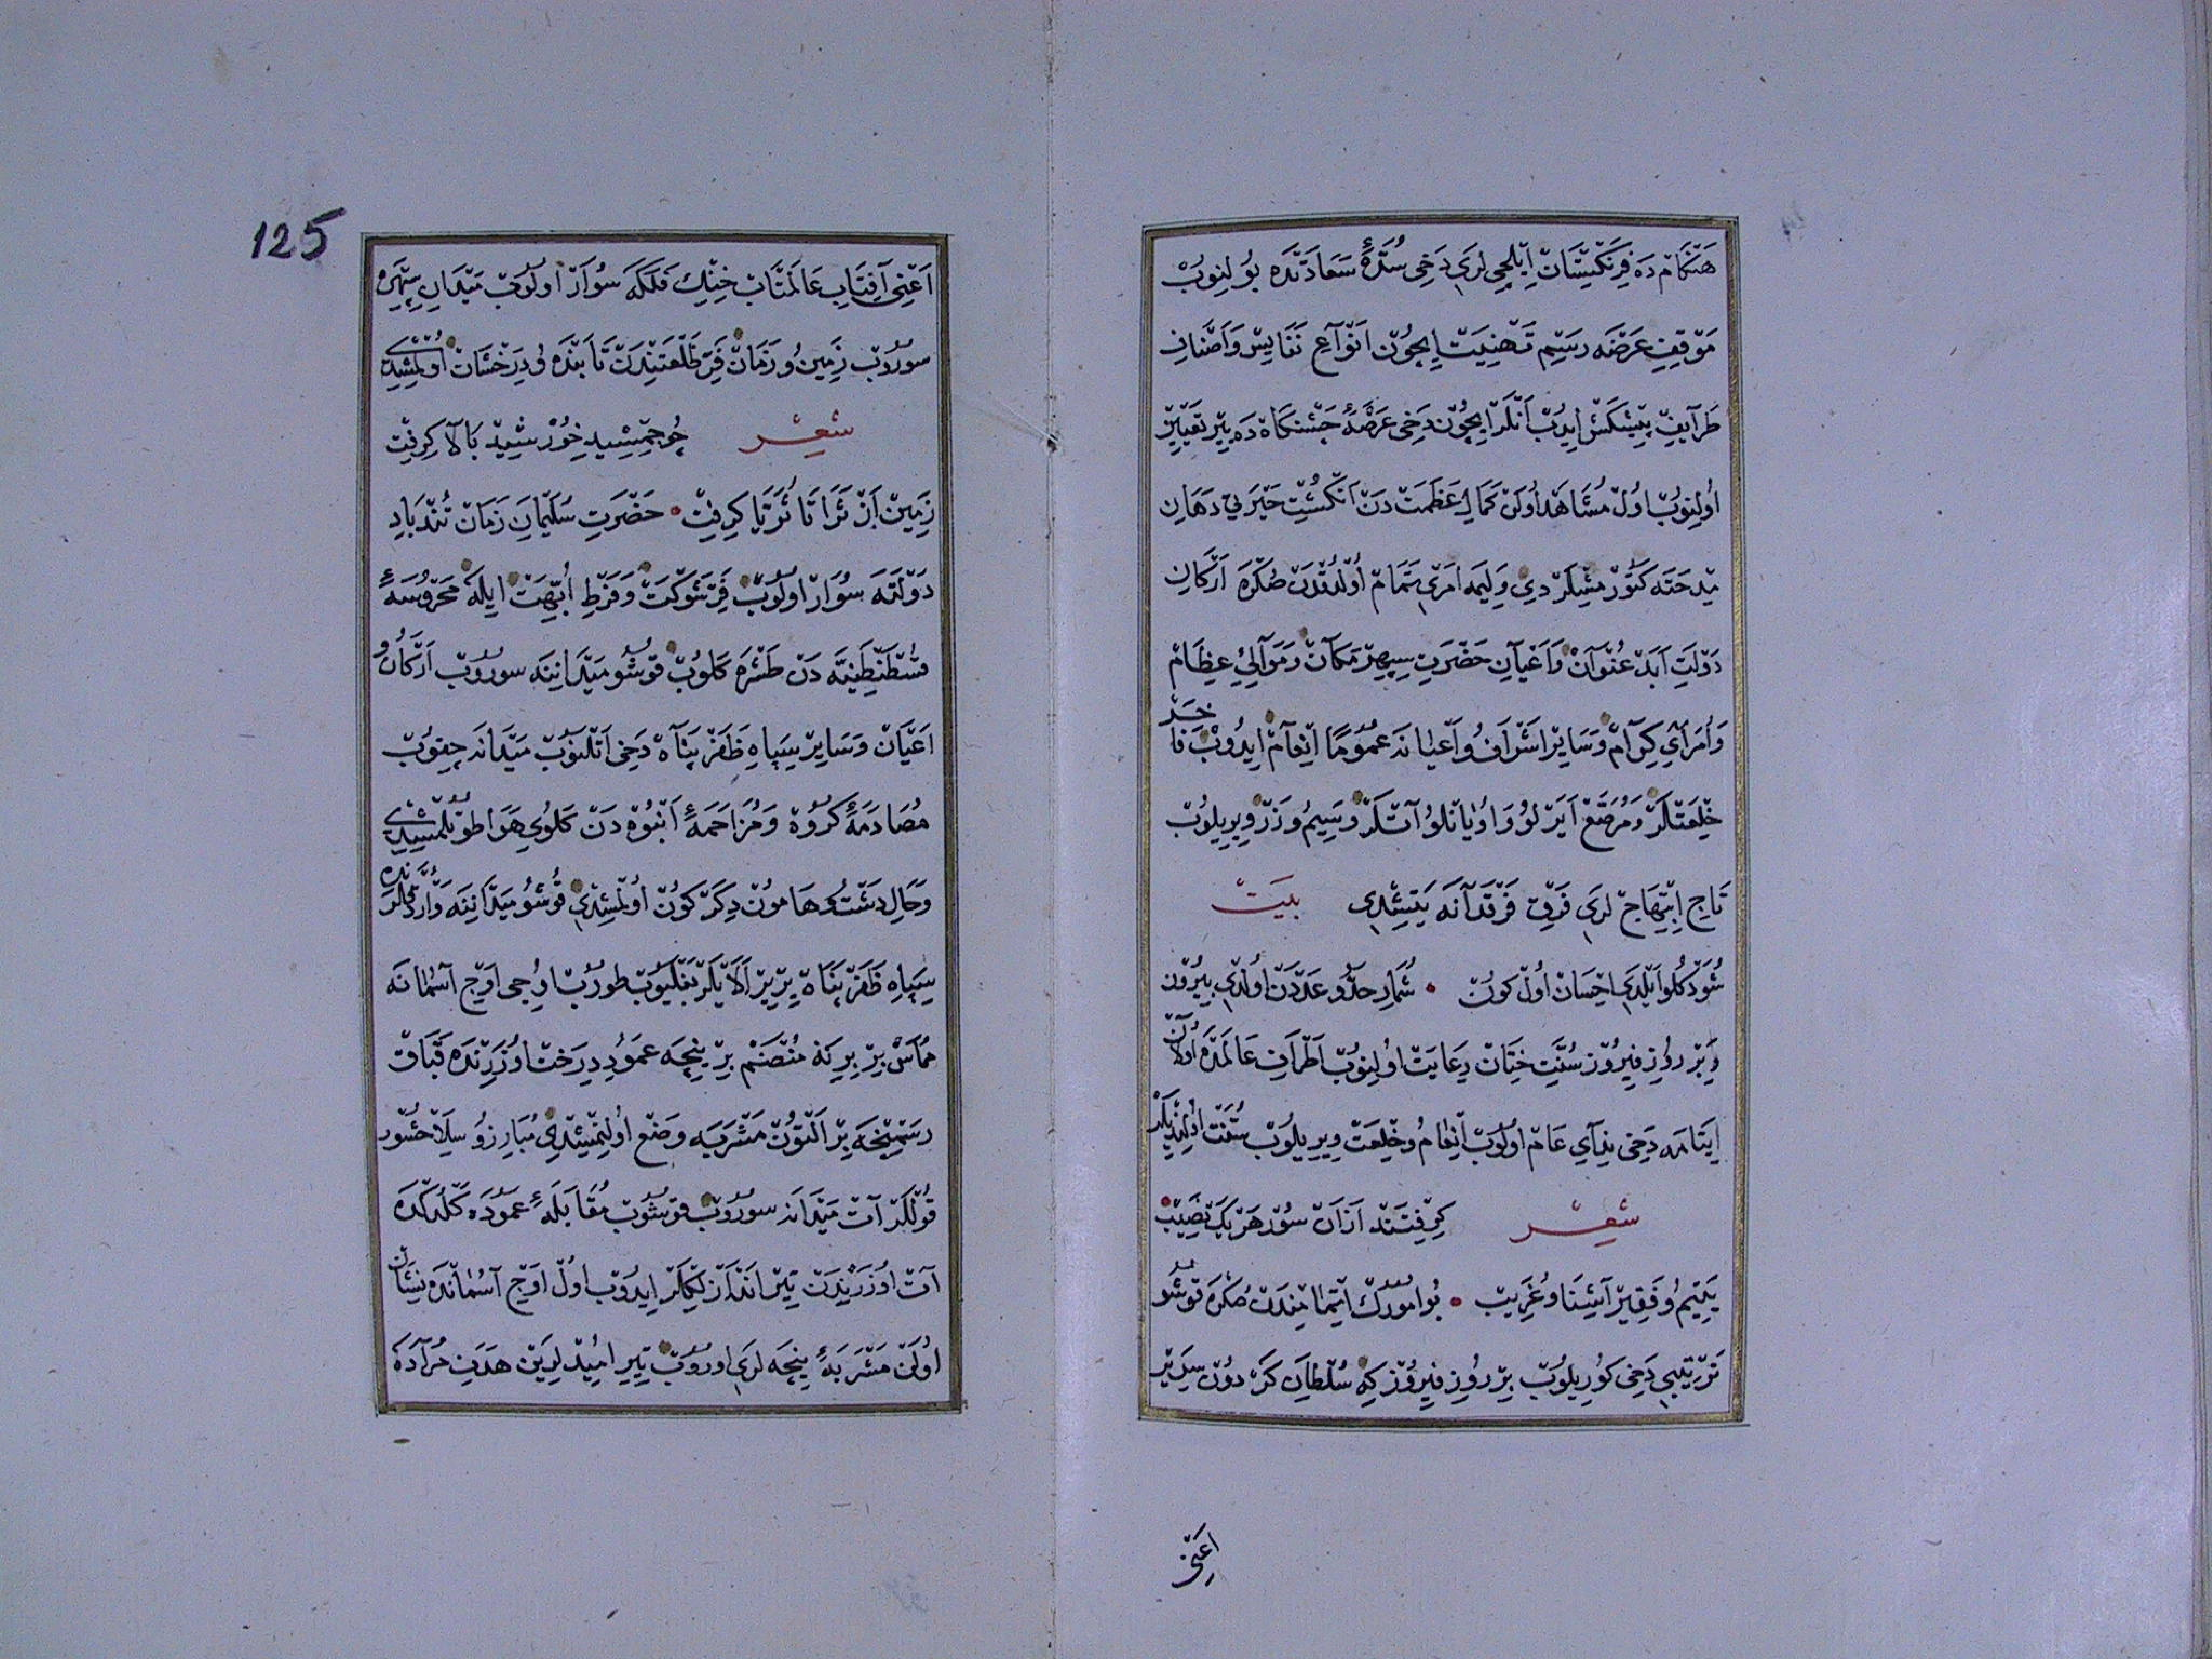 هنكام ده فرنكستان ايلچى لرى دخى سدهٔ سعادتده بولنوب
موقف عرضه رسم تهنيت ايچون انواع نفايس واصناف
طرآيف پيشكش ايدوب انلر ايچون دخى عرصهٔ جشنكاه ده ير تعيين
اولنوب اول مشاهد اولن كمال عظمت دن انكشت حيرتي دهان
مدحته كتورمشلردي وليمه امرى تمام اولدقدن صكره اركان
دولت ابد عنوان واعيان حضرت سپهر مكان وموالئ عظام
وامرآي كرآم وساير اشراف واعيانه عموما انعام ايدوب فاخر
خلعتلر ومرصع ايرلو واويانلو آتلر وسيم وزر ويريلوب
تاج ابتهاج لرى فرق فرقدانه يتشدى بيت
شو دكلو ايلدى احسان اول كون • شمار حد وعددن اولدى بيرون
وبر روز فيروز سنت ختان رعايت اولنوب اطراف عالمده اولان
ايتامه دخى ندآي عام اولوب انعام وخلعت ويريلوب سنت اولنديلر
شعر كرفتند ازان سور هريك نصيب
يتيم وفقير آشنا وغريب • بو امورك اتمامندن صكره قوشو
ترتيبى دخى كوريلوب بر روز فيروز كه سلطان كردون سرير
اعنى
125
اعنى آفتاب عالمتاب خنك فلكه سوار اولوب ميدان سپهره
سوروب زمين وزمان فر طلعتندن تابنده ودرخشان اولمشيدى
شعر چو جمشيد خورشيد بالا كرفت
زمين از ثرا تا ثريا كرفت • حضرت سليمان زمان تندباد
دولته سوار اولوب فر شوكت وفرط ابهت ايله محروسهٔ
قسطنطينيه دن طشره كلوب قوشو ميداننه سوروب اركان و
اعيان وساير سپاه ظفر پناه دخى اتلنوب ميدانه چقوب
مصادمهٔ كروه ومزاحمهٔ انبوه دن كلوى هوا طوتلمشيدى
وحال دشت وهامون دكركون اولمشدى قوشو ميداننه واردقلرنده
سپاه ظفر پناه يريير آلايلر بغليوب طوروب اوجى اوج آسمانه
مماس بر بركه منضم بر نيجه عمود درخت اوزرنده قباق
رسمنجه بر التون مشربه وضع اولنمشدى مبارز وسلاحشور
قوللر آت ميدانه سوروب قوشوب مقابلهٔ عموده كلدكده
آت اوزرندن تير اندازلكلر ايدوب اول اوج آسمانده نشان
اولن مشربهٔ نيجه لرى اوروب تير اميدلرين هدف مراده